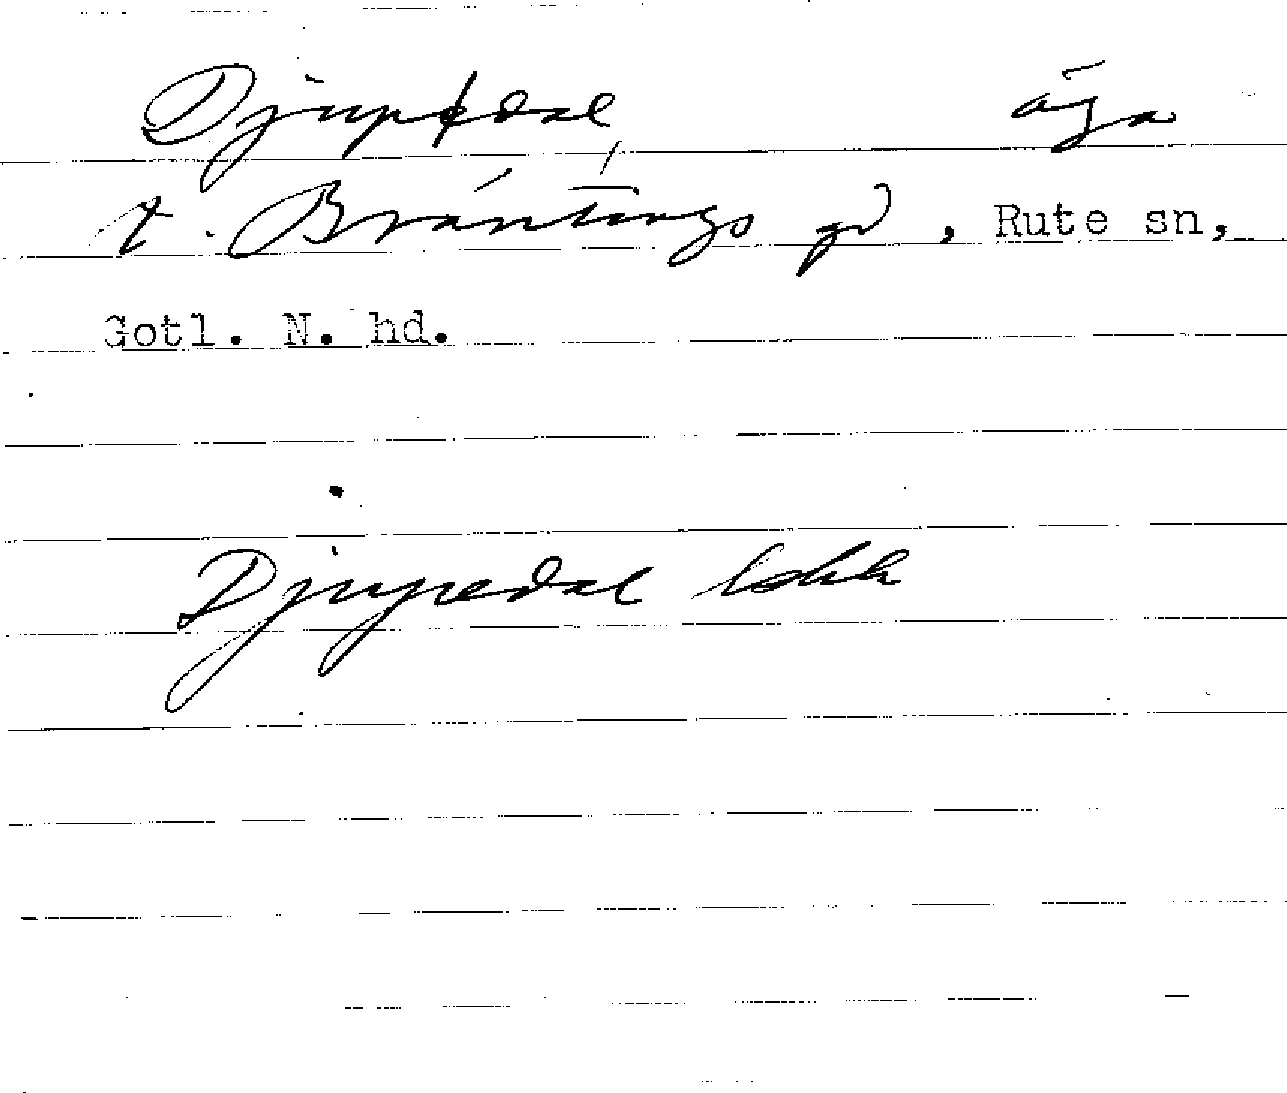 Djupedal äga
t. Bräntings gd, Rute sn,
Gotl. N. hd.
Djupedal